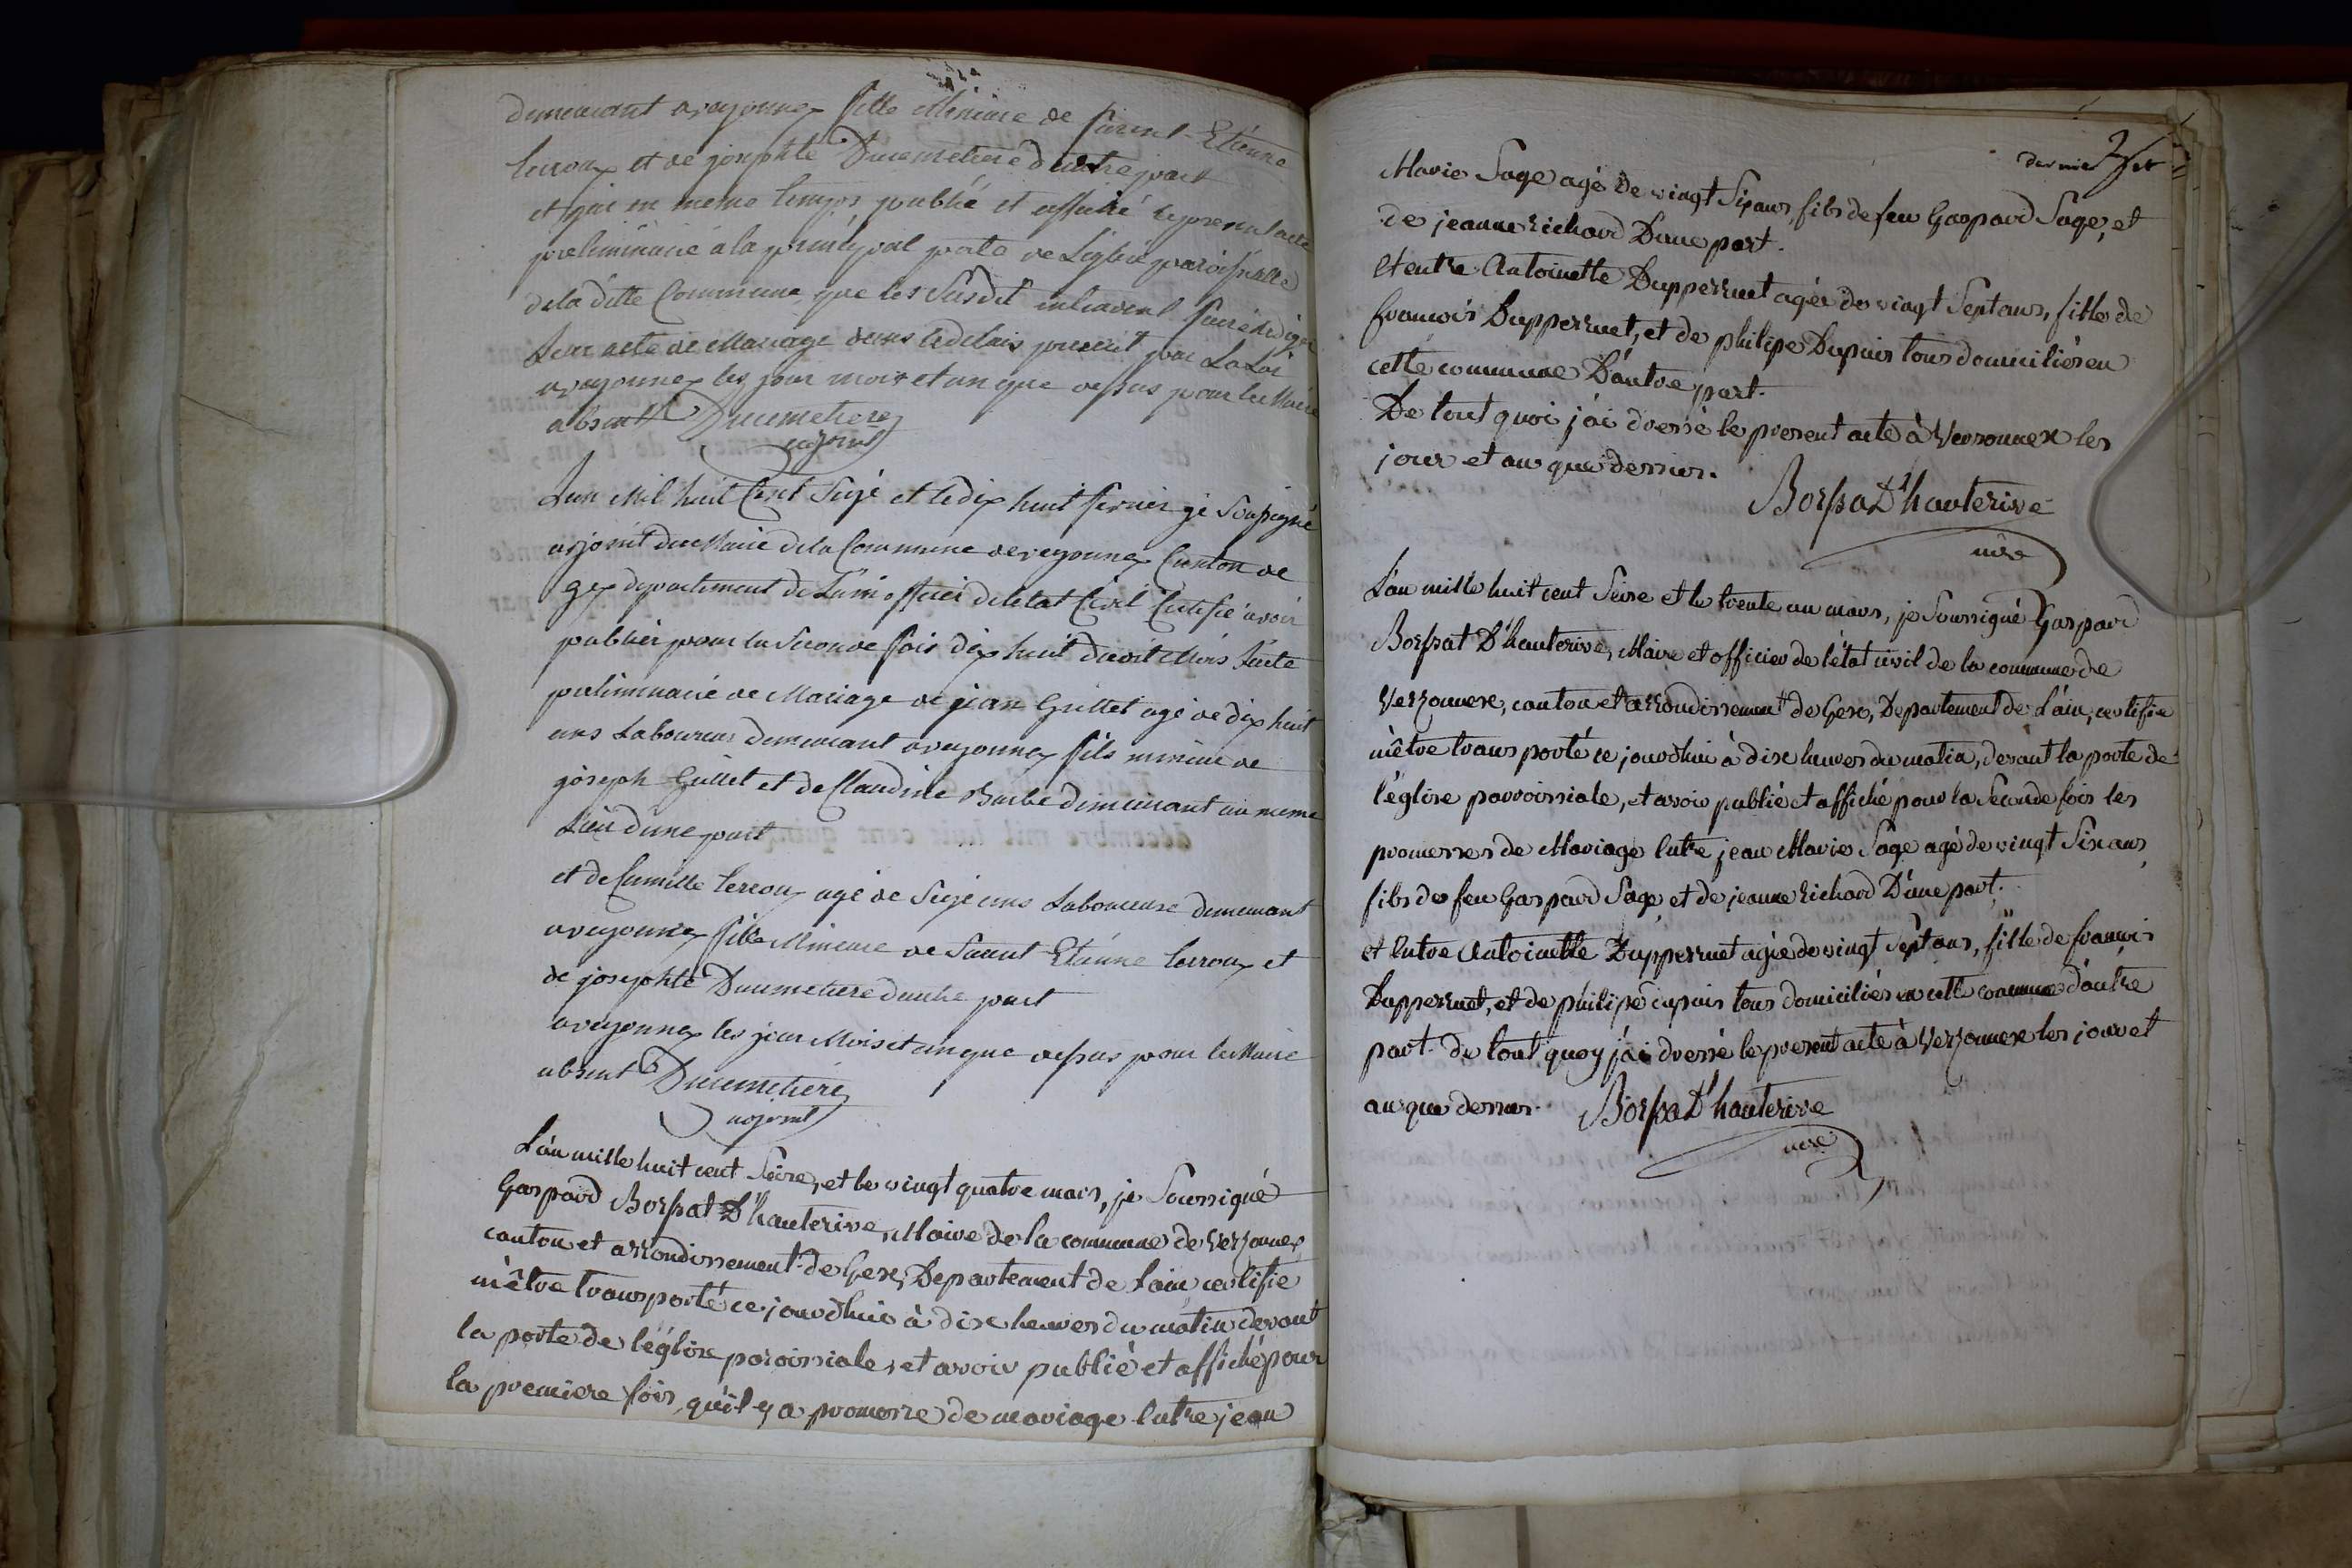 demeurant a veyonnex fille Mineure de faurent - Etienne
lerroux et de josephte Ducimetiere d'autre part
et j'ai en meme temps publié et affiché le present acte
preliminaire á la principal porte de L'eglise paroissialle
de la ditte Commune que les Susdit
Leur acte de Mariage dans le delais prescrit par La Loi
a veyonnex les jour mois et an que dessus pour le Maire
absent Ducimetiere
adjoint
Lan Mil huit Cent Seize et le dix huit fevrier je Soussigné
adjoint du Maire de la Commune de veyonnex Canton de
gex departement de L'ain officier de letat Civil Certifie avoir
publier pour la Seconde fois dix huit dudit Mois Lacte
preliminaire de Mariage de jean Grillet agé de dix huit
ans Laboureur demeurant a veyonnex fils mineur de
joseph Grillet et de Claudine Barbe demeurant au meme
Lieu d'une part
et de Camille lerroux agé de Seize ans Laboureuse demeurant
a veyonnex fille Mineure de Laurent - Etiénne lerroux et
de josephte Ducimetiere d'autre part
a veyonnex les jour Mois et an que dessus pour le Maire
absent Ducimetiére
adjoint
L'an mille huit cent Seize, et le vingt quatre mars, je Soussigné
Gaspard Borssat D'hauterive, Maire de la commune de Verzonnex
canton et arrondissement de Gex, Departement de L'ain certifie
m'être transporté ce jourdhui à dix heures du matin devant
la porte de l'église paroissiale, et avoir publié et affiché pour
la premiere fois, qu'il y a promesse de mariage Entre jean
dernier
Marie Sage agé de vingt Six ans, fils de feu Gaspard Sage, et
de jeanne richard D'une part.
Et entre Antoinette Dupperruet agée de vingt Sept ans, fille de
francois Dupperruet, et de philipe Dupuis tous domiciliés en
cette commune D'autre part.
De tout quoi j'ai dressé le present acte à Versonnex les
jour et an que dessus.
Borssat D'hauterive
mre
L'an mille huit cent Seize et le trente un mars, je Soussigné Gaspard
Borssat D'hauterive, Maire et officier de l'état civil de la commune de
Verzonnex, canton et arrondissement de Gex, Departement de L'ain, certifie
m'être transporté ce jourdhui à dix heures du matin, devant la porte de
l'église parroissiale, et avoir publié et affiché pour la Seconde fois les
promesses de Mariage Entre jean Marie Sage agé de vingt Six ans,
fils de feu Gaspard Sage et de jeanne richard D'une part.
et Entre Antoinette Dupperruet agée de vingt Sept ans, fille de francois
Dupperruet, et de philipe dupuis tous domiciliés en cette commune d'autre
part. de tout quoy j'ai dressé le present acte à Verzonnex les jour et
an que dessus. Borssat D'hauterive
mre